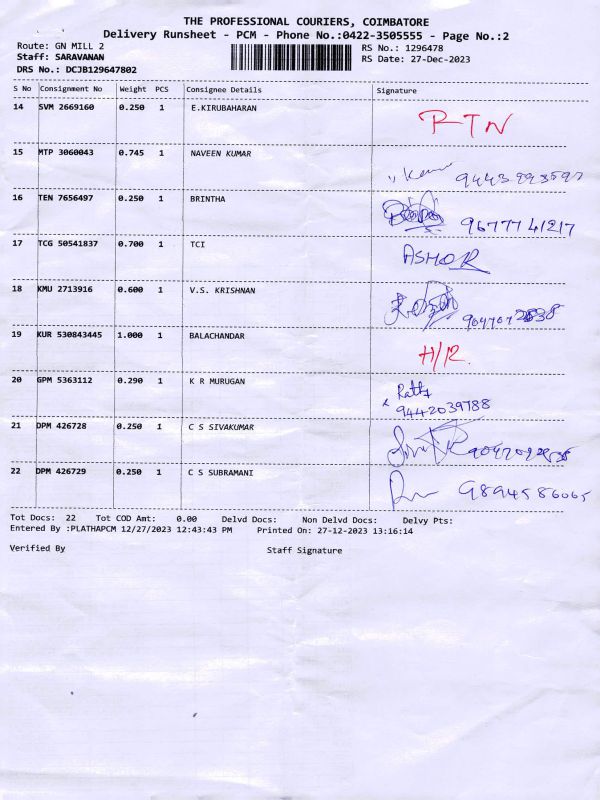 THE PROFESSIONAL COURIERS, COIMBATORE
Delivery Runsheet - PCM - Phone No.:0422-3505555 - Page No.:2
Route: GN MILL 2 RS No.: 1296478
Staff: SARAVANAN RS Date: 27-Dec-2023
DRS No.: DCJB129647802
S No Consignment No Weight PCS Consignee Details Signature
14 SVM 2669160 0.250 1 E.KIRUBAHARAN RTN
15 MTP 3060043 0.745 1 NAVEEN KUMAR
16 TEN 7656497 0.250 1 BRINTHA 9677741217
17 TCG 50541837 0.700 1 TCI ASHOK
18 KMU 2713916 0.600 1 V.S. KRISHNAN
19 KUR 530843445 1.000 1 BALACHANDAR H/R.
20 GPM 5363112 0.290 1 K R MURUGAN
9442039788
21 DPM 426728 0.250 1 C S SIVAKUMAR
22 DPM 426729 0.250 1 C S SUBRAMANI 9894586065
Tot Docs: 22 Tot COD Amt: 0.00 Delvd Docs: Non Delvd Docs: Delvy Pts:
Entered By :PLATHAPCM 12/27/2023 12:43:43 PM Printed On: 27-12-2023 13:16:14
Verified By Staff Signature